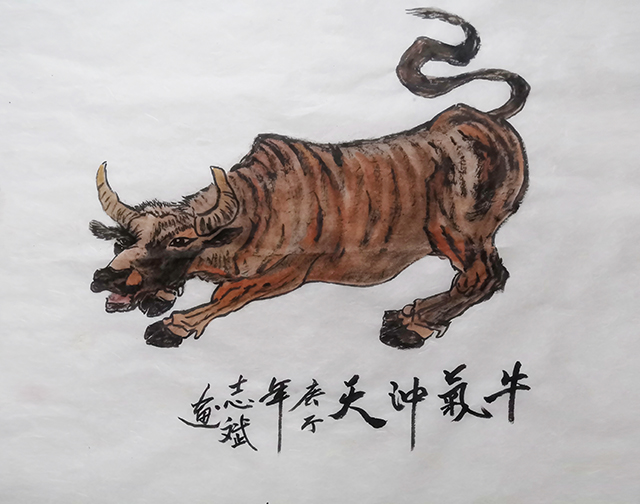 牛氣冲天
庚子年
志斌
画